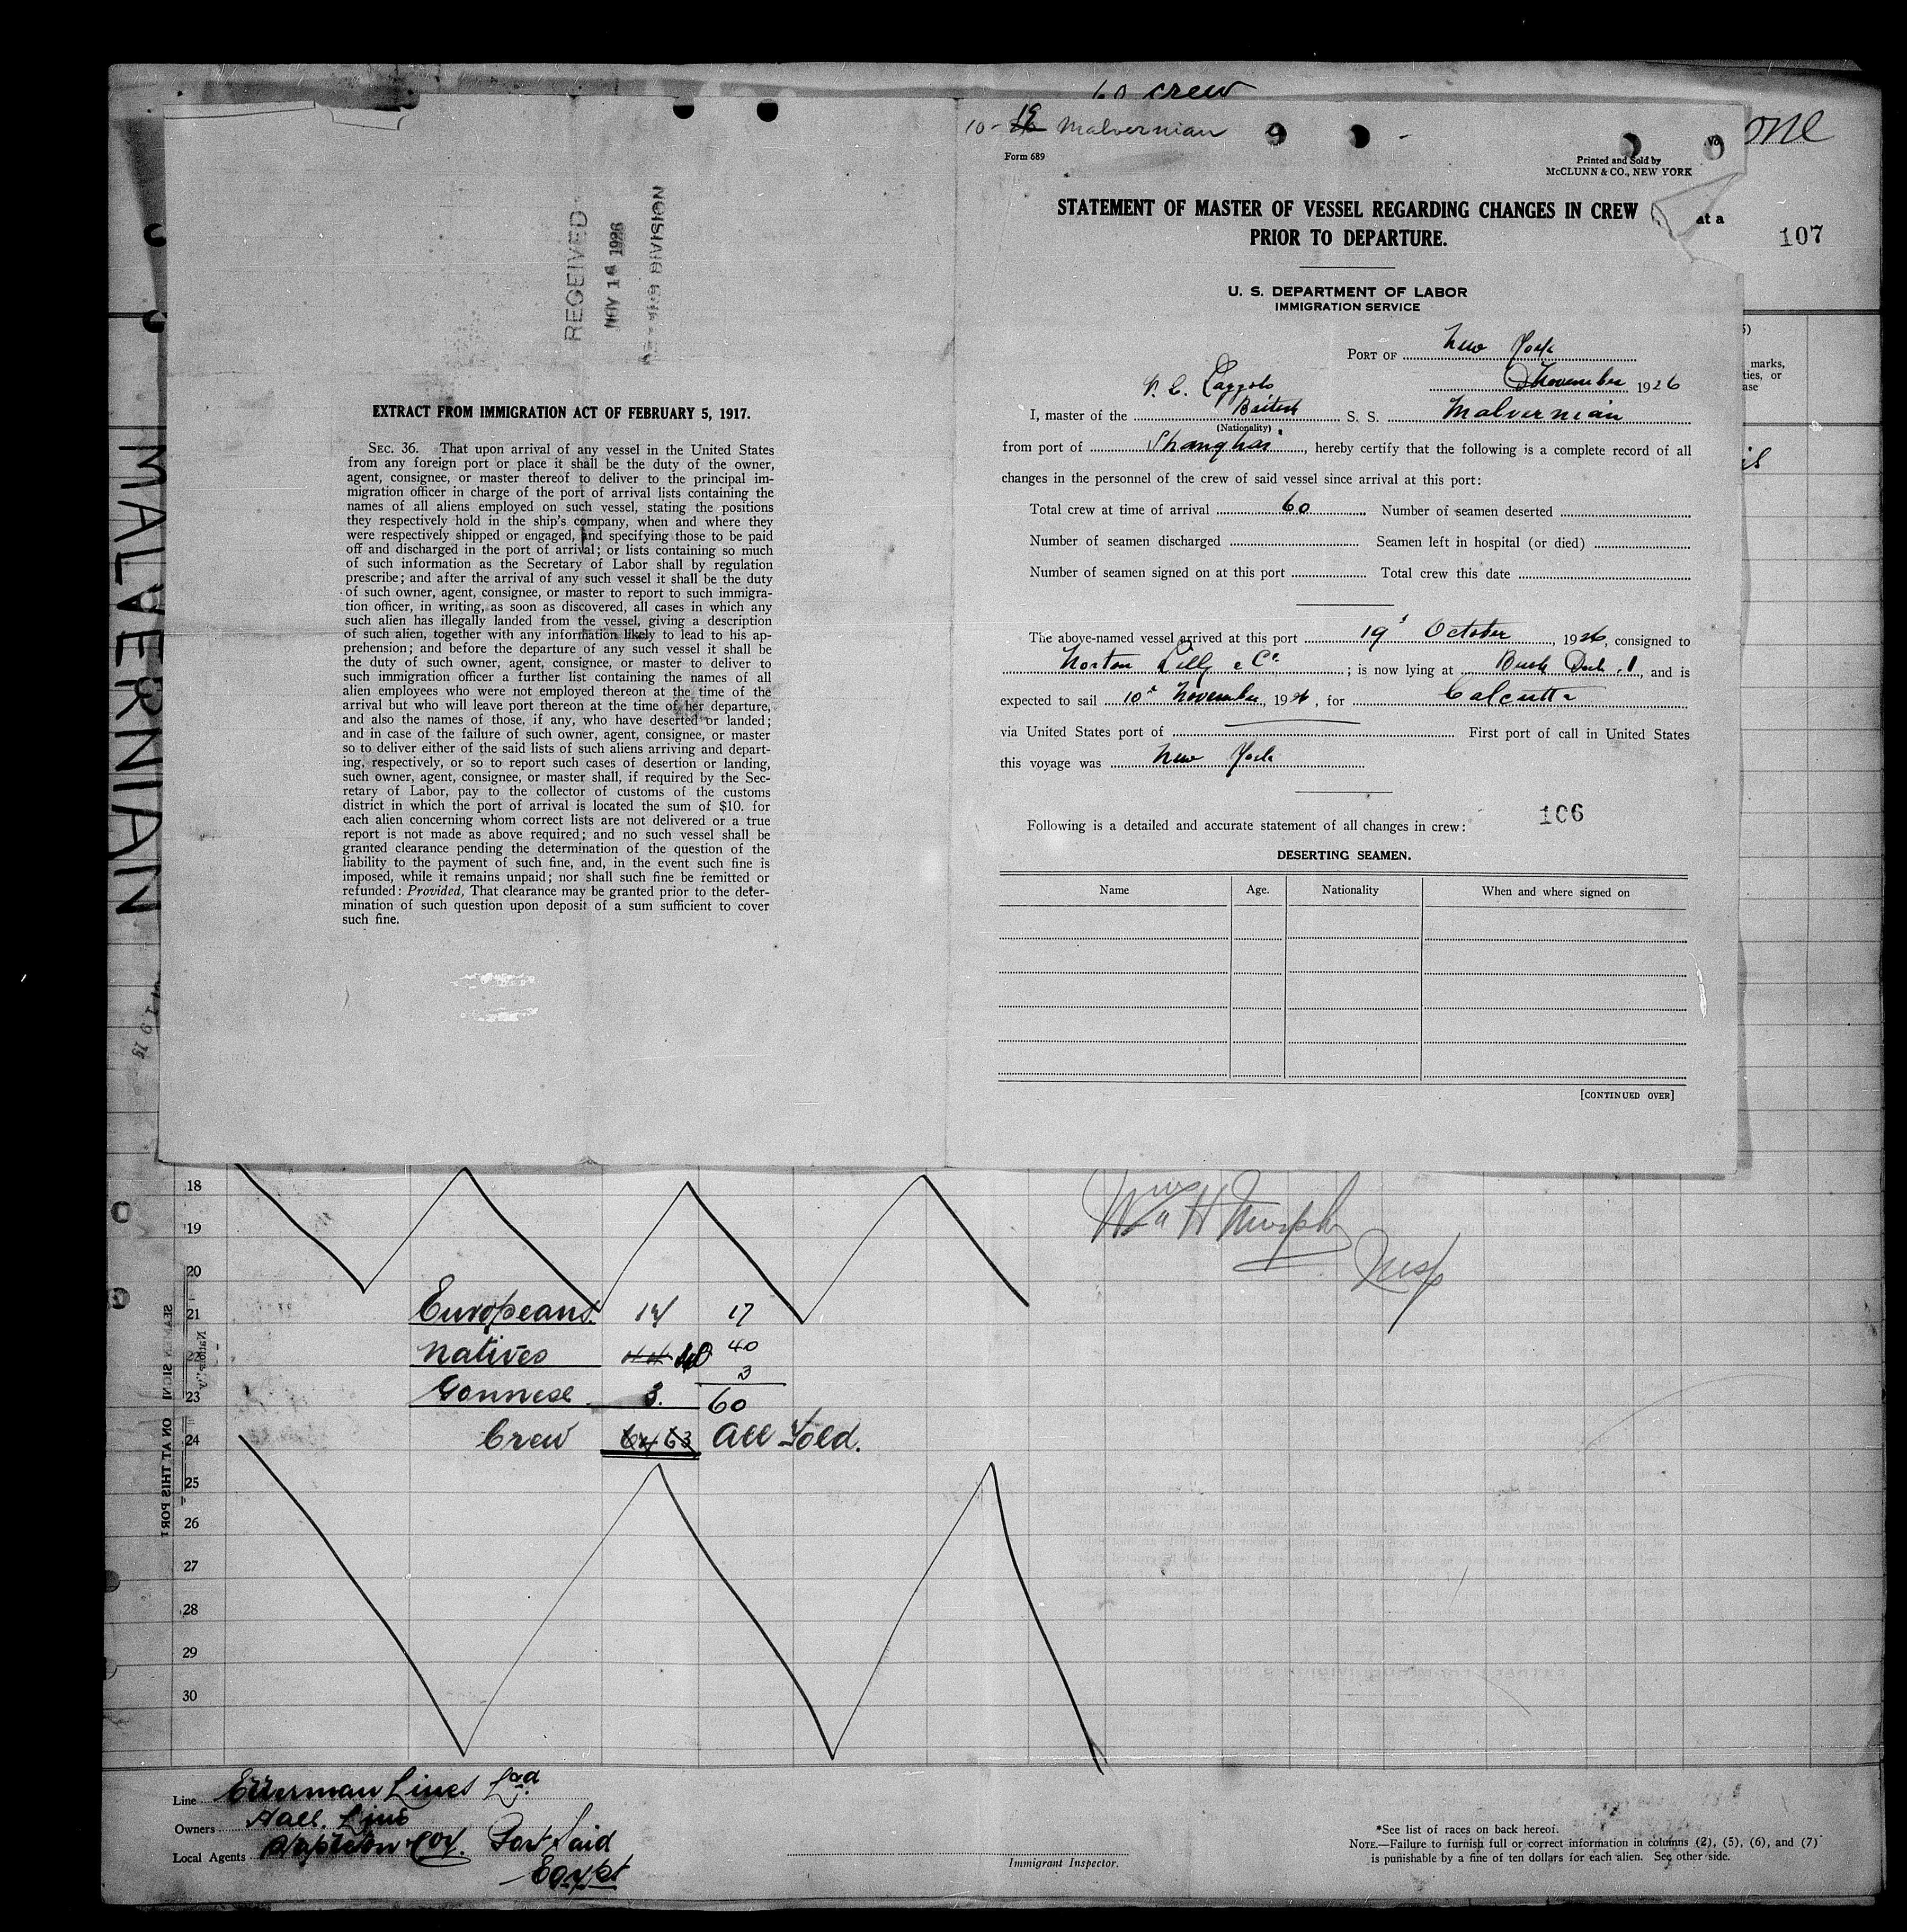 60 crew
10-19 Malvernian
one
Form 689
Printed and Sold by
McCLUNN & CO., NEW YORK
STATEMENT OF MASTER OF VESSEL REGARDING CHANGES IN CREW
PRIOR TO DEPARTURE.
at a
107
U. S. DEPARTMENT OF LABOR
IMMIGRATION SERVICE
PORT OF New York
November 1926
I, master of the British S. S. Malvernian
(Nationality)
from port of Shanghai, hereby certify that the following is a complete record of all
changes in the personnel of the crew of said vessel since arrival at this port:
Total crew at time of arrival 60 Number of seamen deserted
Number of seamen discharged Seamen left in hospital (or died)
Number of seamen signed on at this port Total crew this date
The above-named vessel arrived at this port 19 October, 1926, consigned to
Norton Lilly & Co; is now lying at Bush Dock, and is
expected to sail 10 November, 1926, for Calcutta
via United States port of First port of call in United States
this voyage was New York
106
Following is a detailed and accurate statement of all changes in crew:
DESERTING SEAMEN.
Name Age. Nationality When and where signed on
[CONTINUED OVER]
marks,
ties, or
ase
RECEIVED
NOV 16 1926
DIVISION
EXTRACT FROM IMMIGRATION ACT OF FEBRUARY 5, 1917.
SEC. 36. That upon arrival of any vessel in the United States
from any foreign port or place it shall be the duty of the owner,
agent, consignee, or master thereof to deliver to the principal im-
migration officer in charge of the port of arrival lists containing the
names of all aliens employed on such vessel, stating the positions
they respectively hold in the ship's company, when and where they
were respectively shipped or engaged, and specifying those to be paid
off and discharged in the port of arrival; or lists containing so much
of such information as the Secretary of Labor shall by regulation
prescribe; and after the arrival of any such vessel it shall be the duty
of such owner, agent, consignee, or master to report to such immigra-
tion officer, in writing, as soon as discovered, all cases in which any
such alien has illegally landed from the vessel, giving a description
of such alien, together with any information likely to lead to his ap-
prehension; and before the departure of any such vessel it shall be
the duty of such owner, agent, consignee, or master to deliver to
such immigration officer a further list containing the names of all
alien employees who were not employed thereon at the time of the
arrival but who will leave port thereon at the time of her departure,
and also the names of those, if any, who have deserted or landed;
and in case of the failure of such owner, agent, consignee, or master
so to deliver either of the said lists of such aliens arriving and depart-
ing, respectively, or so to report such cases of desertion or landing,
such owner, agent, consignee, or master shall, if required by the Sec-
retary of Labor, pay to the collector of customs of the customs
district in which the port of arrival is located the sum of $10. for
each alien concerning whom correct lists are not delivered or a true
report is not made as above required; and no such vessel shall be
granted clearance pending the determination of the question of the
liability to the payment of such fine, and, in the event such fine is
imposed, while it remains unpaid; nor shall such fine be remitted or
refunded: Provided, That clearance may be granted prior to the deter-
mination of such question upon deposit of a sum sufficient to cover
such fine.
MALVERNIAN
18
19
20
21 Europeans. 17 17
22 Natives 40 40
3
23 Gonnese 3. 60
24 Crew 64 63 All Told.
25
26
27
28
29
30
Wm H Murphy
Insp
SEAMEN SIGNED ON AT THIS PORT
Line Ellerman Lines Ltd
Owners Hall Line
Local Agents Stapleton Port Said
Egypt
Immigrant Inspector.
*See list of races on back hereof.
NOTE.—Failure to furnish full or correct information in columns (2), (5), (6), and (7)
is punishable by a fine of ten dollars for each alien. See other side.